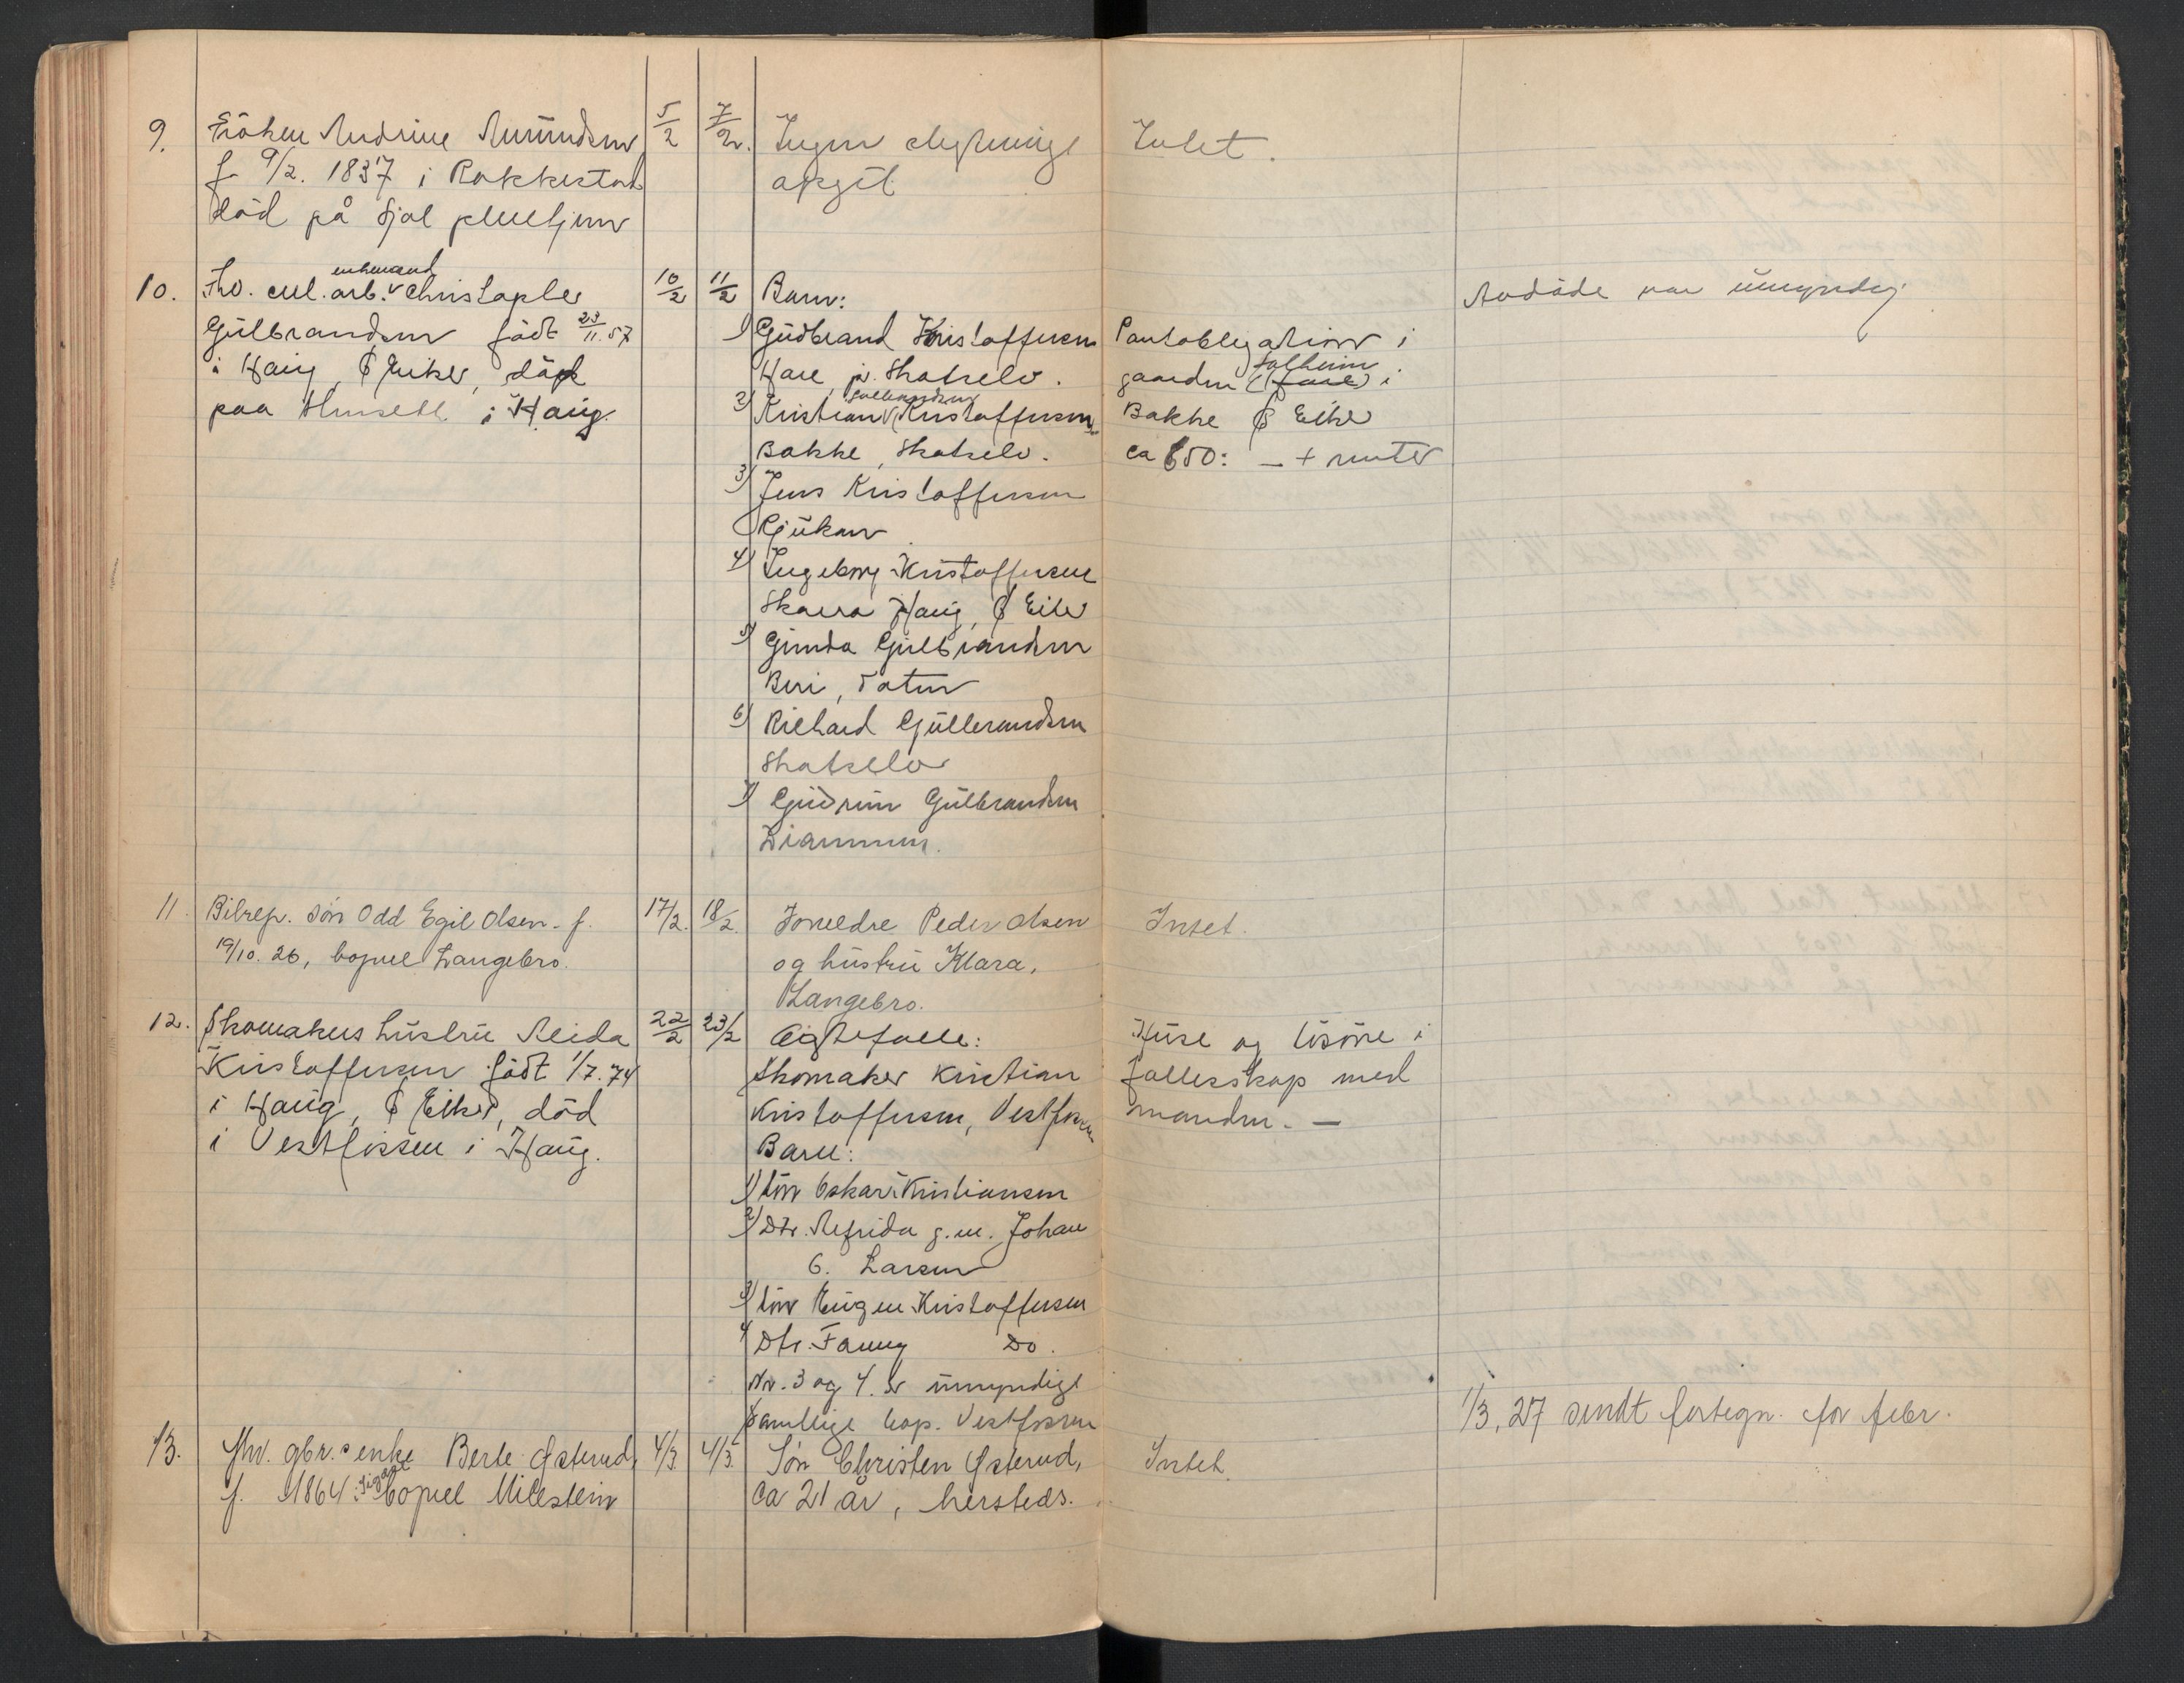 9. Fröken Andrine Amundsen 5/2 7/2. Ingen slegtninge Intet.
f. 9/2. 1837 i Rakkestad opgit
död på Fjøl pleiehjem
10. enkemand
Fhv. arb. Christopher 10/2 11/2 Barn: Avdöde var umyndig
Gulbrandsen födt 23/11.57 1) Gudbrand Kristoffersen Pantobligation i
i Haug, Ø Eiker, död Hare, pr. Skotselv. gaarden Solheim (Hare) i
paa Hunsedl i Haug. 2) Kristian Gulbrandsen (Kristoffersen) Bakke Ø Eiker
Bakke, Skotselv. ca 650: – + renter
3) Jens Kristoffersen
Rjukan
4) Ingeborg Kristoffersen
Skaara Haug, Ø Eiker
5) Gunda Gulbrandsen
Beri, Toten
6) Richard Gulbrandsen
Skotselv
7) Gudrun Gulbrandsen
Drammen.
11. Bilrep. sön Odd Egil Olsen - f. 17/2. 18/2. Foreldre Peder Olsen Intet.
19/10. 26, bopæl Langebro. og hustru Klara,
Langebro.
12. Skomakers hustru Alida 22/2 23/2 Egtefælle: Huse og lösöre i
Kristoffersen födt 1/7. 74 Skomaker Kristian fællesskap med
i Haug, Ø Eiker, död Kristoffersen, Vestfossen manden. –
i Vestfossen i Haug. Barn:
1) Sön Oskar Kristiansen
2) Dtr. Alfrida g.m. Johan
G. Larsen
3) Sön Eugen Kristoffersen
4) Dtr. Fanny Do.
Nr. 3 og 4. er umyndige
samtlige bop. Vestfossen 1/3. 27 sendt fortegn. for febr.
13. Fhv. gbr.s enke Berte Østerud, 4/3. 4/3. Sön Christen Østerud, Intet.
f. 1864 i Sigdal bopæl Milestein ca 21 år, hersteds.